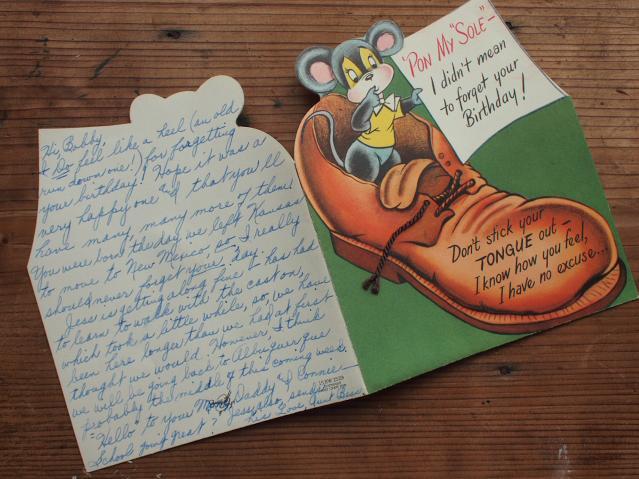 Hi Bobby,
I Do feel like a heel (an old
run down one!) for forgetting
your birthday! Hope it was a
very happy one & that you'll
have many, many more of them!
You were born the day we left Kansas
to move to New Mexico, so, I really
should never forget your day.
Jess is getting along fine - has had
to learn to walk with the cast on,
which took a little while, so, we have
been here longer than we had at first
thought we would. However I think
we will be going back to Albuquerque
probably the middle of this coming week.
"Hello" to your Mommy, Daddy & Connie -
School going great? Jess also, sends
his Love, Aunt Bess
'PON MY "SOLE" -
I didn't mean
to forget your
Birthday!
Don't stick your
TONGUE out -
I know how you feel,
I have no excuse...